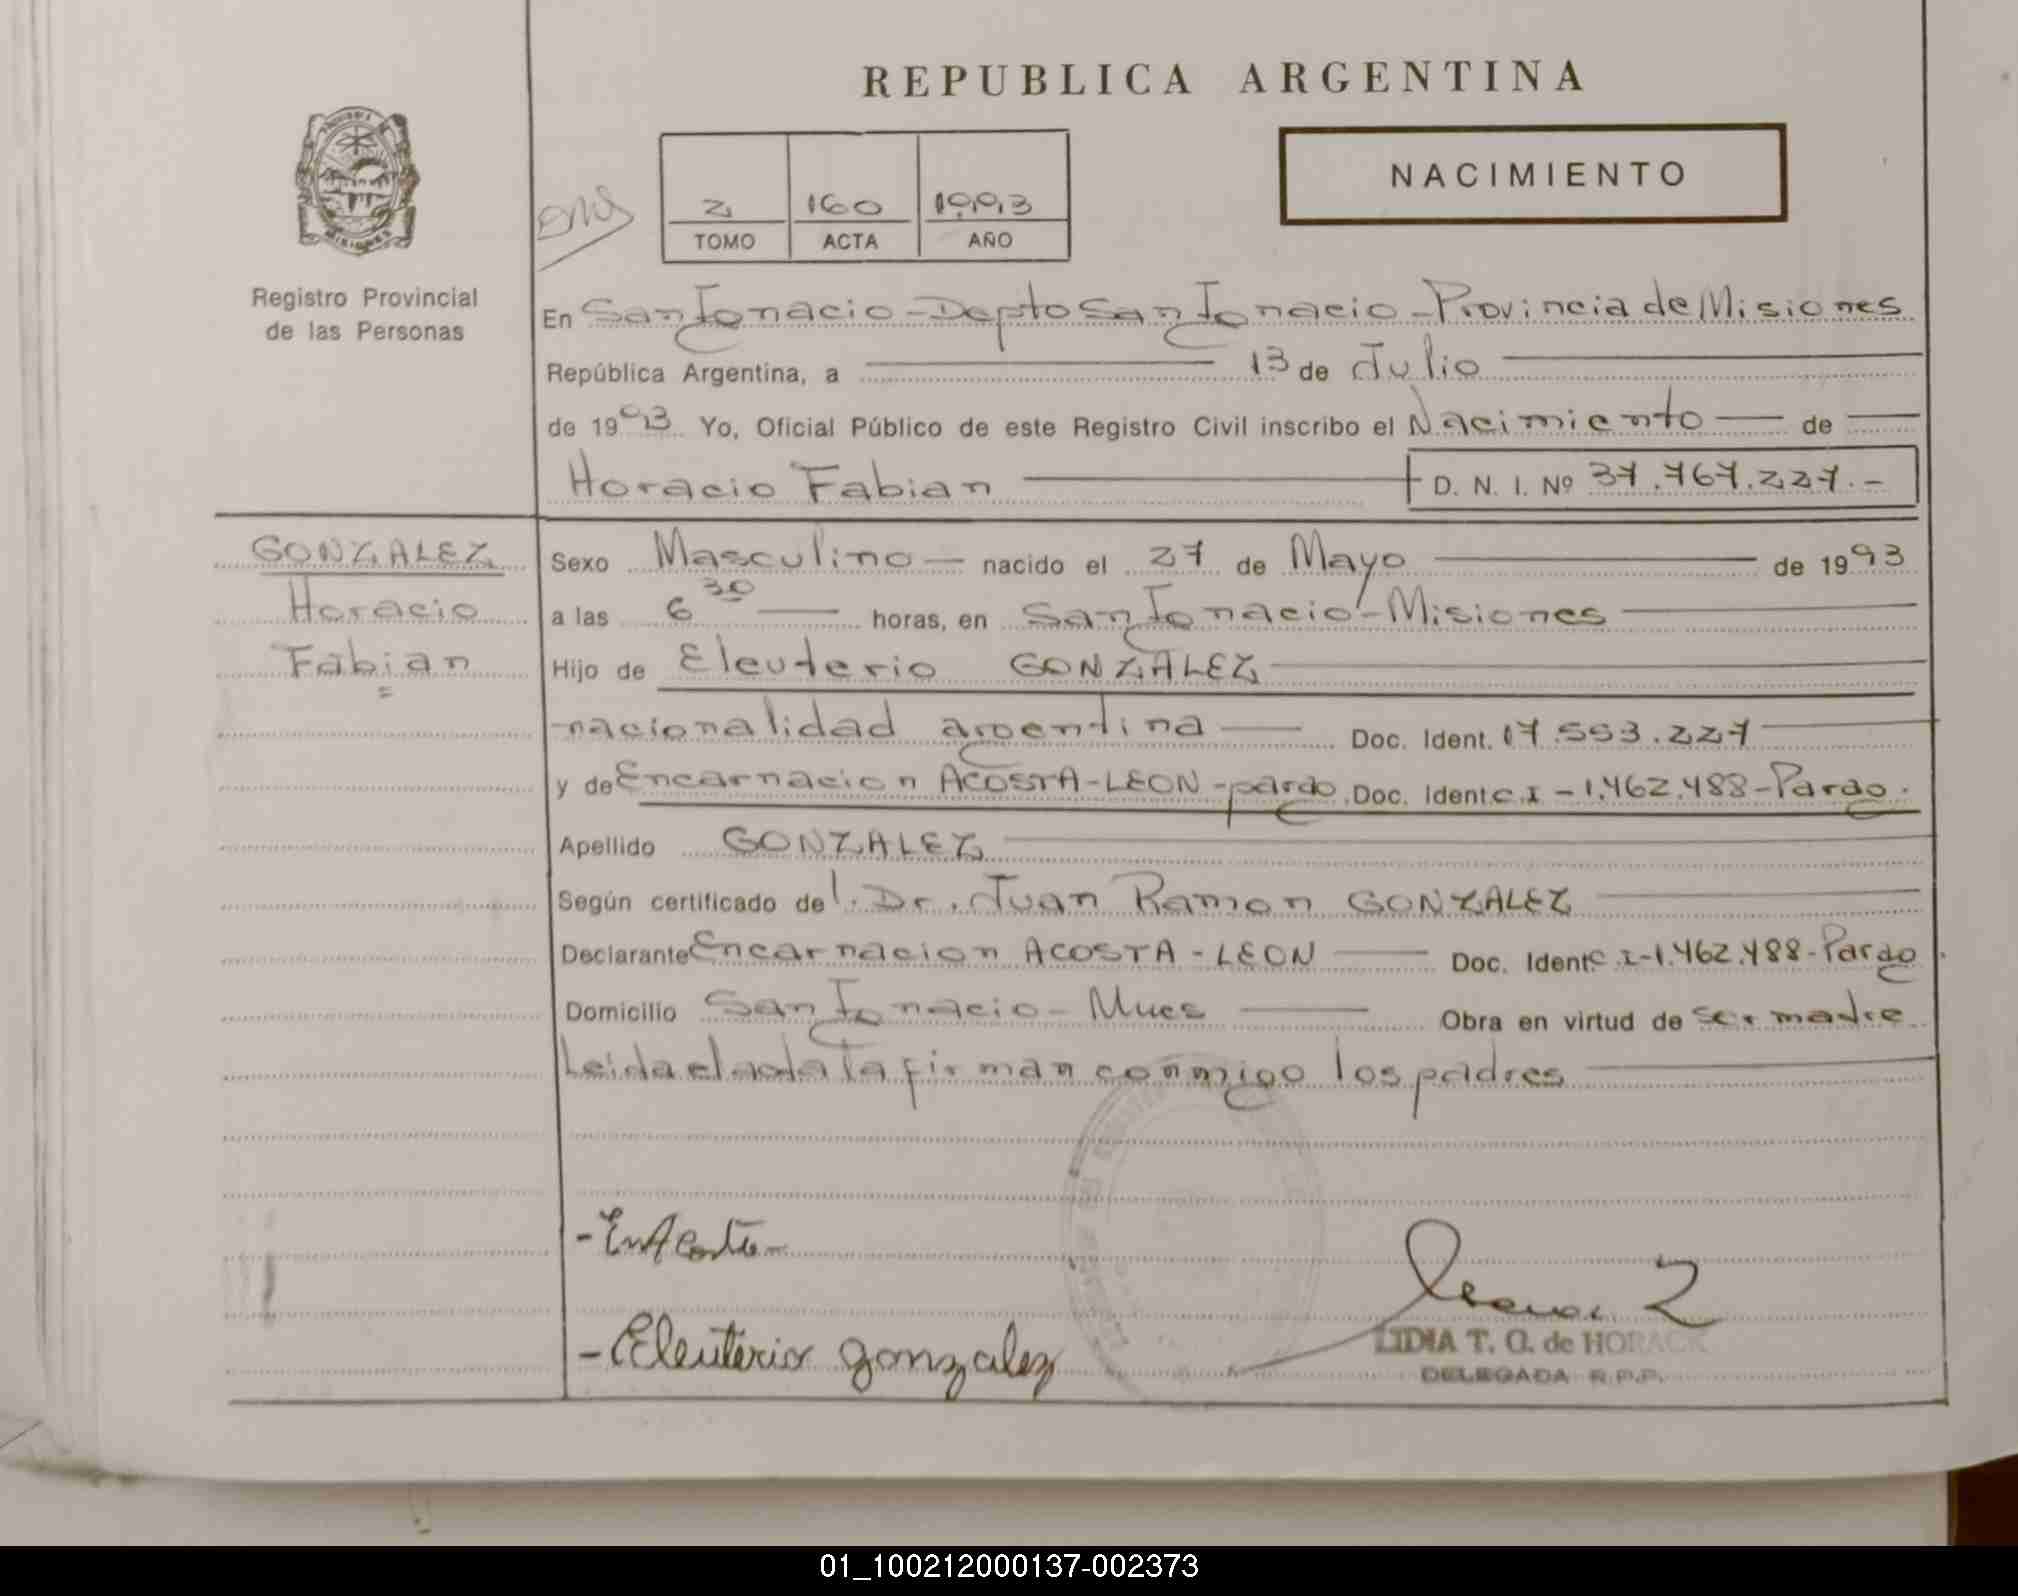 REPUBLICA ARGENTINA
NACIMIENTO
2 160 1993
TOMO ACTA AÑO
Registro Provincial
de las Personas
En San Ignacio - Depto San Ignacio - Provincia de Misiones
República Argentina, a 13 de Julio
de 1993 Yo, Oficial Público de este Registro Civil inscribo el Nacimiento de
Horacio Fabian D. N. I. Nº 37.767.227.-
GONZALEZ
Horacio
Fabian
Sexo Masculino nacido el 27 de Mayo de 1993
a las 6 30 horas, en San Ignacio - Misiones
Hijo de Eleuterio GONZALEZ
nacionalidad argentina Doc. Ident. 17.553.227
y de Encarnacion ACOSTA-LEON - pargo Doc. Ident C.I - 1.462.488 - Pargo.
Apellido GONZALEZ
Según certificado del. Dr. Juan Ramon GONZALEZ
Declarante Encarnacion ACOSTA - LEON Doc. Ident C.I - 1.462.488 - Pargo
Domicilio San Ignacio - Mnes Obra en virtud de ser madre
Leida el acta la firman conmigo los padres
- Eleuterio gonzalez
LIDIA T. O. de HORACK
DELEGADA R.P.P.
01_100212000137-002373